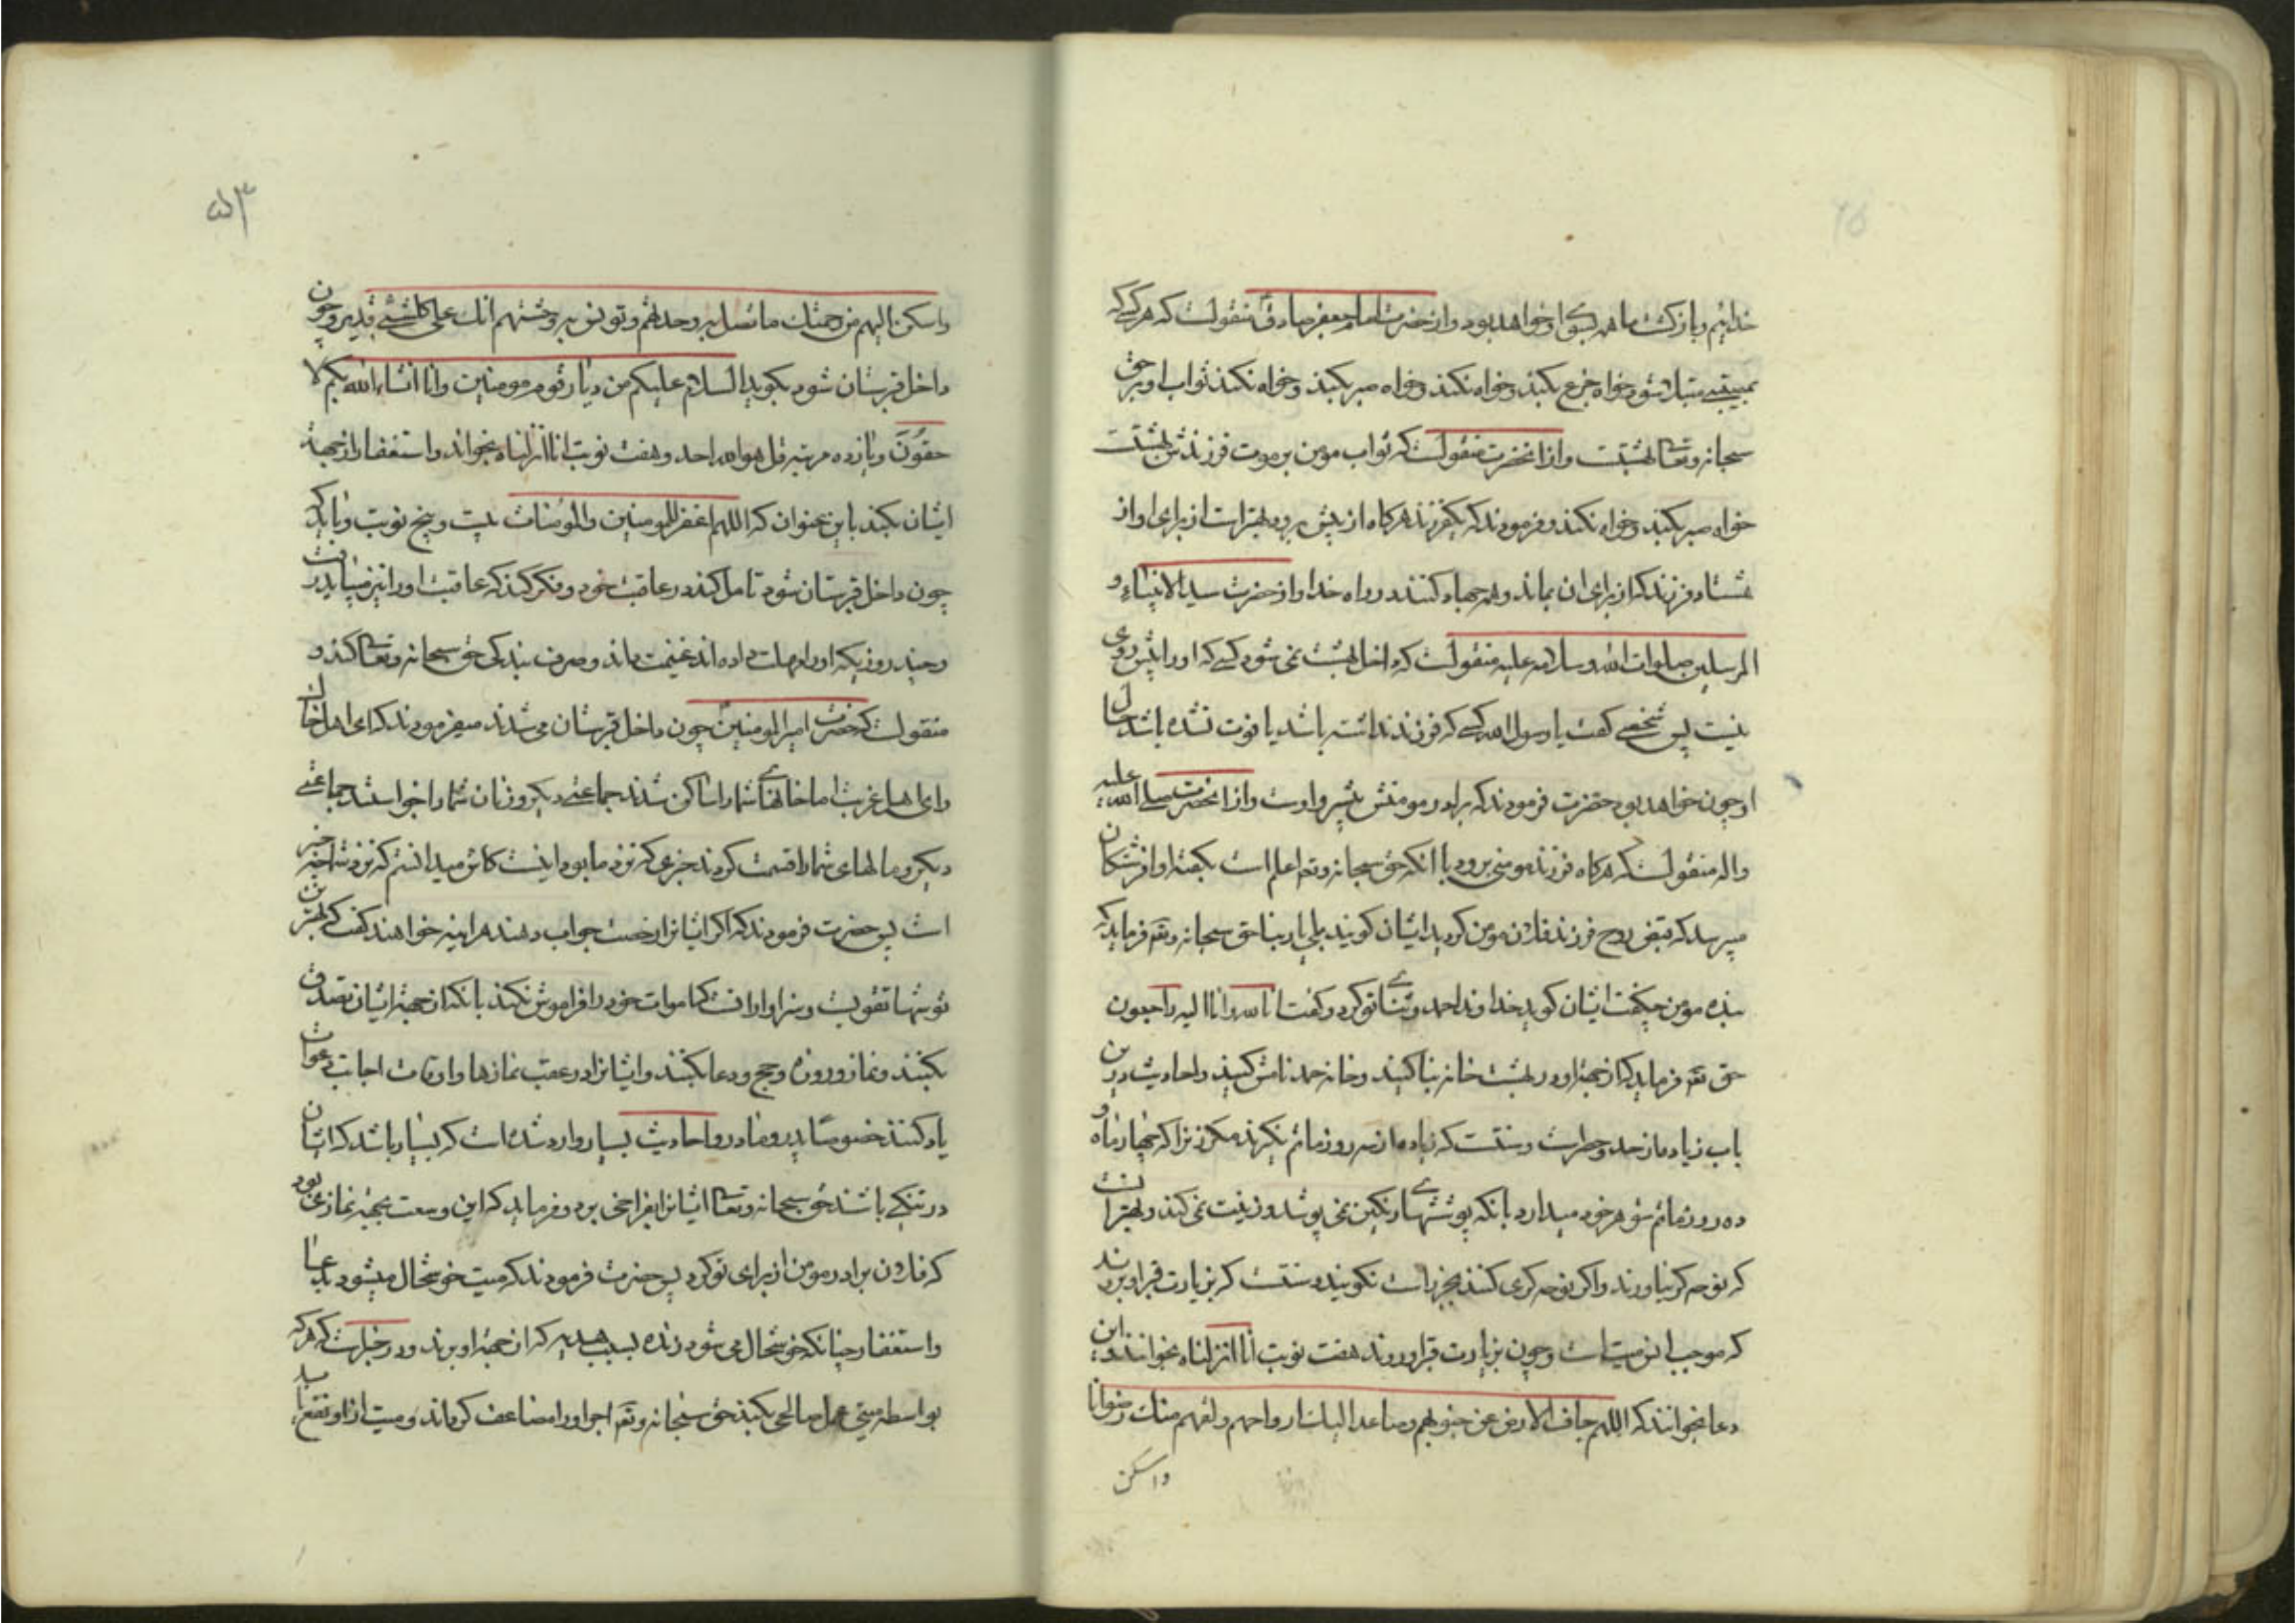 خدائیم و بازگشت ما همه بسوی او خواهد بود و از حضرت امام جعفر صادق منقولست که هر کسی که
بمصیبتی مبتلا شود خواه جزع بکند و خواه نکند و خواه صبر بکند و خواه نکند ثواب او بر حق
سبحانه و تعالی بهشتست و از آنحضرت منقولست که ثواب مومن بر موت فرزندش بهشتست
خواه صبر بکند و خواه نکند و فرمودند که یکفرزند هرگاه از پیش برود بهتر است از برای او از
هفتاد فرزند که از برای ان بماند و همه جهاد کنند در راه خدا و از حضرت سید الانبیاء و
المرسلین صلوات الله و سلامه علیه منقولست که داخل بهشت نمی شود کسی که او را پیش روی
نیست پس شخصی گفت یا رسول الله کسی که فرزند نداشته باشد یا فوت نشده باشد حال
او چون خواهد بود حضرت فرمودند که برادر مومنش پیش رو اوست و از آنحضرت صلی الله علیه
و اله منقولست که هرگاه فرزند مومنی برود با آنکه حق سبحانه و تعم اعلم است بگفته او از فرشتگان
میپرسد که قبض روح فرزند فلان مومن کردید ایشان گویند بلی یا ربنا حق سبحانه و تعم فرماید که
بنده مومن چگفت ایشان گوید خداوندا حمد و ثنای تو کرد و گفت انا لله و انا الیه راجعون
حق تعم فرماید که از جهة او در بهشت خانه بنا کنید و خانه حمد نامش کنید و احادیث درین
باب زیاده از حد و حصر است و سنتست که زیاده از سه روز ماتم نگیرند مگر زنرا که چهار ماه و
ده روز ماتم شوهر خود میدارد بانکه پوششهای رنگین نمی پوشد و زینت نمی کند و بهتر آنست
که نوحه گر نیاورند و اگر نوحه گری کنند بجز راست نگویند و سنتست که بزیارت قبر او بروند
که موجب انس میت است و چون بزیارت قبر او روند هفت نوبت انا انزلناه بخوانند و این
دعا بخوانند که اللهم جاف الارض عن جنوبهم و صاعد الیك ارواحهم و لقهم منك رضوانا
واسکن
۵۳
واسکن الیهم من رحمتك ما تصل به وحدتهم و تونس به وحشتهم انك علی کل شیء قدیر و چون
داخل قبرستان شود بگوید السلام علیکم من دیار قوم مومنین و انا انشاء الله بکم لا
حقون و یازده مرتبه قل هو الله احد و هفت نوبت انا انزلناه بخواند و استغفار از جهة
ایشان بکند باین عنوان که اللهم اغفر للمومنین و المومنات بیست و پنج نوبت و باید که
چون داخل قبرستان شود تامل کند در عاقبت خود و فکر کند که عاقبت او را نیز میباید رفت
و چند روزیکه او را مهلت داده اند غنیمت داند و صرف بندگی حق سبحانه و تعالی کند و
منقولست که حضرت امیر المومنین چون داخل قبرستان می شدند میفرمودند که ای اهل خاك
و ای اهل غربت اما خانهای شما را ساکن شدند جماعتی دیگر و زنان شما را خواستند جماعتی
دیگر و مالهای شما را قسمت کردند خبری که نزد ما بود اینست کاش میدانستم که نزد شما چه خبر
است پس حضرت فرمودند که اگر ایشانرا رخصت جواب دهند هر اینه خواهند گفت که بهترین
توشها تقویست و سزاوار انست که اموات خود را فراموش نکند بانکه از جهة ایشان تصدق
بکنند و نماز و روزه و حج و دعا بکنند و ایشانرا در عقب نمازها و اوقات اجابت دعوات
یاد کنند خصوصا پدر و مادر و احادیث بسیار وارد شده است که بسیار باشد که ایشان
در تنگی باشند حق سبحانه و تعالی ایشانرا بفراخی برد و فرماید که این وسعت بجهة نمازی بود
که فلان برادر مومن از برای تو کرد پس حضرت فرمودند که میت خوشحال میشود بدعا
و استغفار چنانکه خوشحال می شود زنده بسبب هدیه که از جهة او برند و در خبر است که هر که
بواسطه میتی عمل صالحی بکند حق سبحانه و تعم اجر او را مضاعف گرداند و میت از او نفع یابد